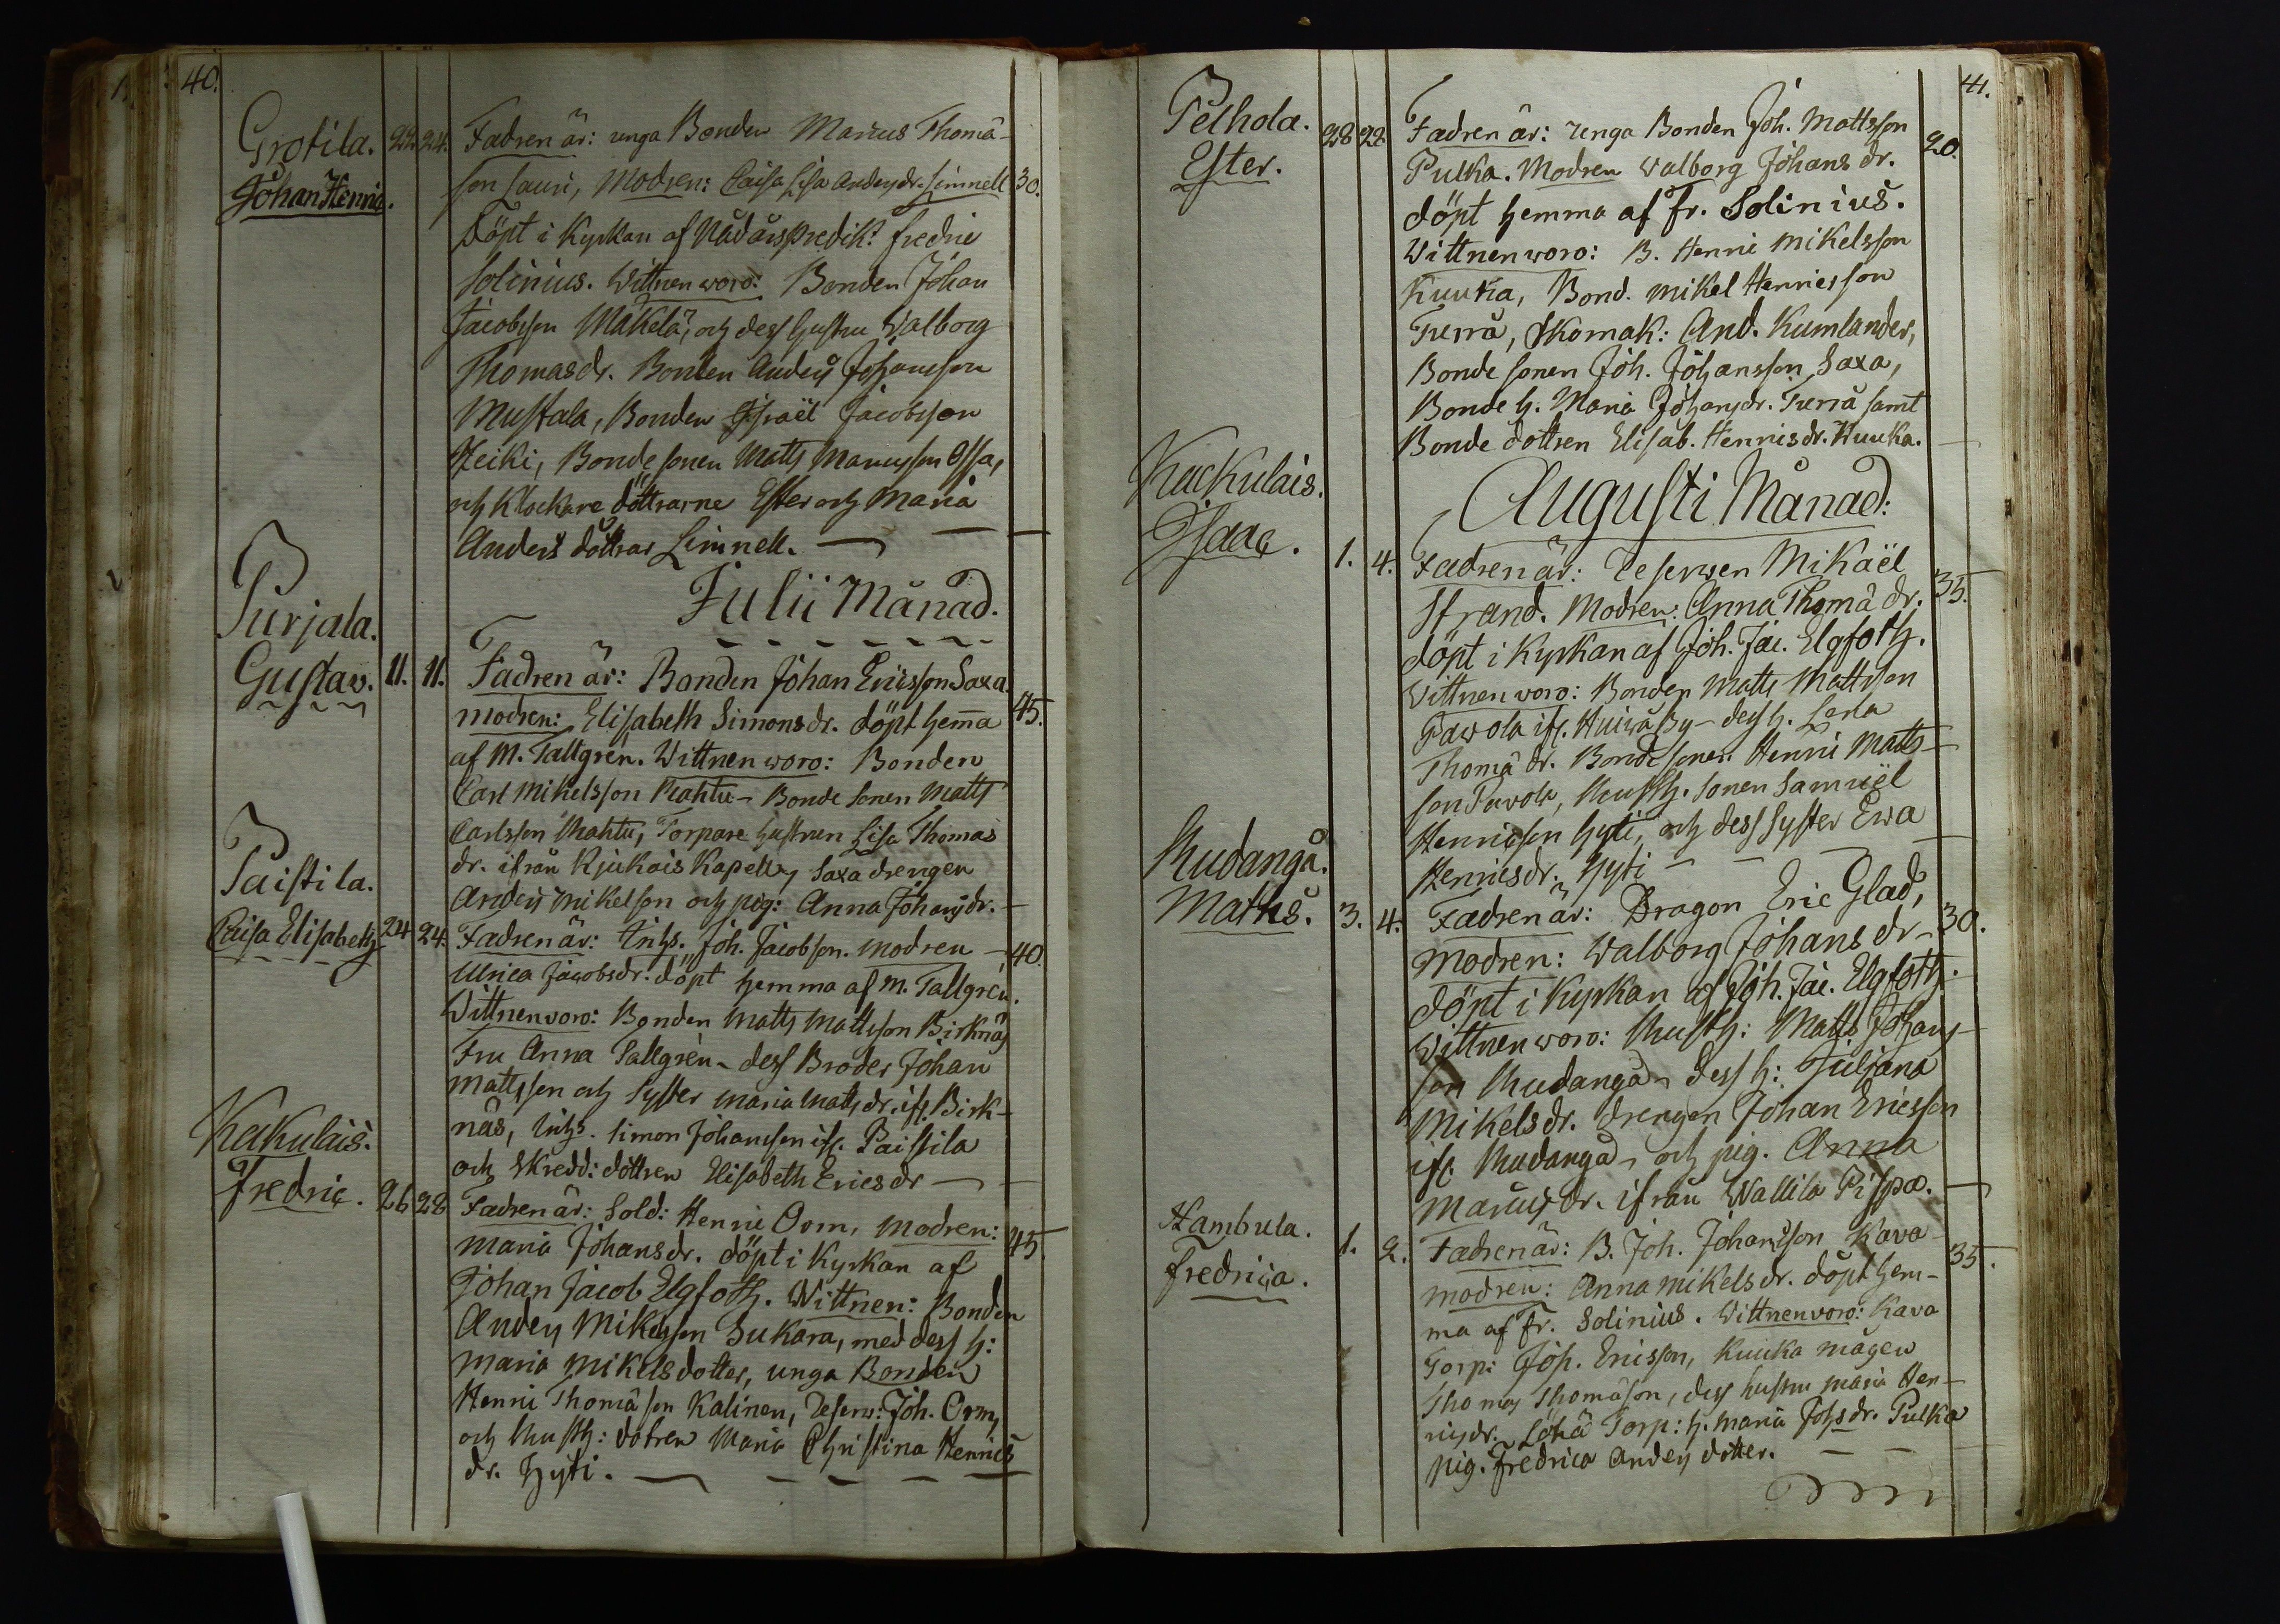 40.
Grotila.
Johan Henric.
24. 24.
Fadren är: unga Bonden Marcus Thomä-
son Lauri, Modren: Caisa Lisa Andersdr. Limnell 30.
Döpt i Kyrkan af Nådårspredik: Fredric
Solinius. Wittnen woro: Bonden Johan
Jacobsson Mäkelä, och dess hustru Walborg
Thomasdr. Bonden Anders Johansson
Mustala, Bonden Israël Jacobsson
Heiki, Bonde sonen Matts Marcusson Ossa,
och Klockare döttrarne Ester och Maria
Anders döttrar Limnell.
Julii Månad.
Purjala.
Gustav. 11. 11.
Fadren är: Bonden Johan Ericsson Saxa.
modren: Elisabeth Simonsdr. döpt hemma 45.
af M. Tallgrén. Wittnen woro: Bonden
Carl Mikelsson Mahtu - Bonde sonen Matts
Carlsson Mahtu, Torpare hustrun Lisa Thomas
dr. ifrån Kjukais Kapell, Saxa drengen
Anders Mikelson och pig: Anna Johansdr.
Paistila.
Caisa Elisabeth 24 24.
Fadren är: Inhs. Joh. Jacobson. modren 40.
Ulrica Jacobsdr. döpt hemma af M. Tallgrén.
Wittnen woro: Bonden Matts Mattsson Birknäs
Fru Anna Tallgrén - dess Broder Johan
Mattsson och Syster Maria Mattsdr. ifr. Birk-
näs, Inhs. Simon Johansson ifr. Paistila
och Skredd: dottren Elisabeth Ericsdr
Kakulais.
Fredric. 26 28
Fadren är: Sold: Henric Orm, modren:
Maria Johansdr. döpt i Kyrkan af 45.
Johan Jacob Elgfoth. Wittnen: Bonden
Anders Mikelsson Sukara, med dess h:
Maria Mikelsdotter, unga Bonden
Henric Thomäson Kalinen, Reserv: Joh. Orm,
och Rusth: dotren Maria Christina Henrics
dr. Hyti.
41.
Pelhola.
Ester.
28 28
Fadren är: unga Bonden Joh. Mattsson 20.
Pulka. Modren Walborg Johans dr.
döpt hemma af Fr. Solinius.
Wittnen woro: B. Henric Mikelsson
Kuuka, Bond. Mikel Henricsson
Tuerrä, Skomak: And. Kumlander,
Bonde sonen Joh. Johansson Saxa,
Bonde h. Maria Johansdr. Tuerrä samt
Bonde dottren Elisab. Henricsdr. Kuuka.
Augusti Månad:
Kackulais.
Isaac. 1. 4.
Fadren är: Reserven Mikaël
Strand. Modren: Anna Thomä dr. 35.
döpt i Kyrkan af Joh. Jac. Elgfoth.
Wittnen woro: Bonden Matts Mattsson
Pawola ifr. By - dess h. Lena
Thomä dr. Bonde sonen Henric Matts-
son Pavola, Rusth. sonen Samuël
Henricsson Hyti, och dess Syster Ewa
Henricsdr. Hyti
Rudanga.
Matths. 3. 4.
Fadren är: Dragon Eric Glad,
modren: Walborg Johans dr 30.
döpt i Kyrkan af Joh. Jac. Elgfoth.
Wittnen woro: Rusth: Matts Johans-
son Rudanga, dess h: Juljana
Mikels dr. drengen Johan Ericsson
ifr. Rudanga, och pig. Anna
Marcusdr. ifrån Wallila Pispa.
Hambula.
Fredrica. 1. 2.
Fadren är: B. Joh. Johansson Kava
modren: Anna Mikels dr. döpt hem- 35.
ma af Fr. Solinius. Wittnen woro: Kava
Torp: Joh. Ericsson, Kuuka mågen
Thomas Thomäson, dess hustru Maria Hen-
ricsdr. Torp: h. Maria Johsdr. Pulka
pig. Fredrica Anders dotter.